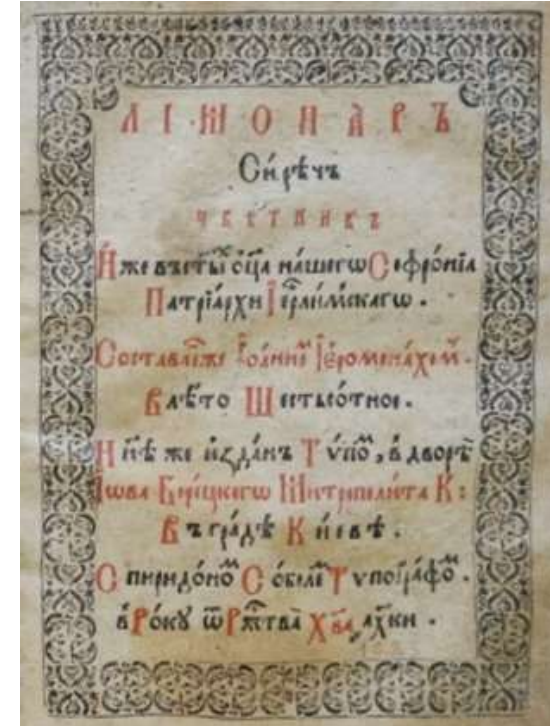 ЛІМОНАРЪ
Си́рѣчъ
ЦВѢТНИКЪ
И́же въ ст҃ы́ ѻц҃а на́шегѡ Софро́нїа
Патрїа́рхи Іер҃ли́мскагѡ.
Соста́вле́же Іѡа́нно Іеромона́хом.
В лѣ́то Шестьсо́тное.
Нн҃ѣ же и́зданъ Тѵпо, в дворѣ̀
Іѡва Боре́цкегѡ Митрополи́та К:
Въ гра́дѣ Кі́евѣ.
Спиридо́но Со́боле Тѵпогра́фо.
в Ро́ку ѿ Рж҃тва̀ Хв҃а, а҂хки.